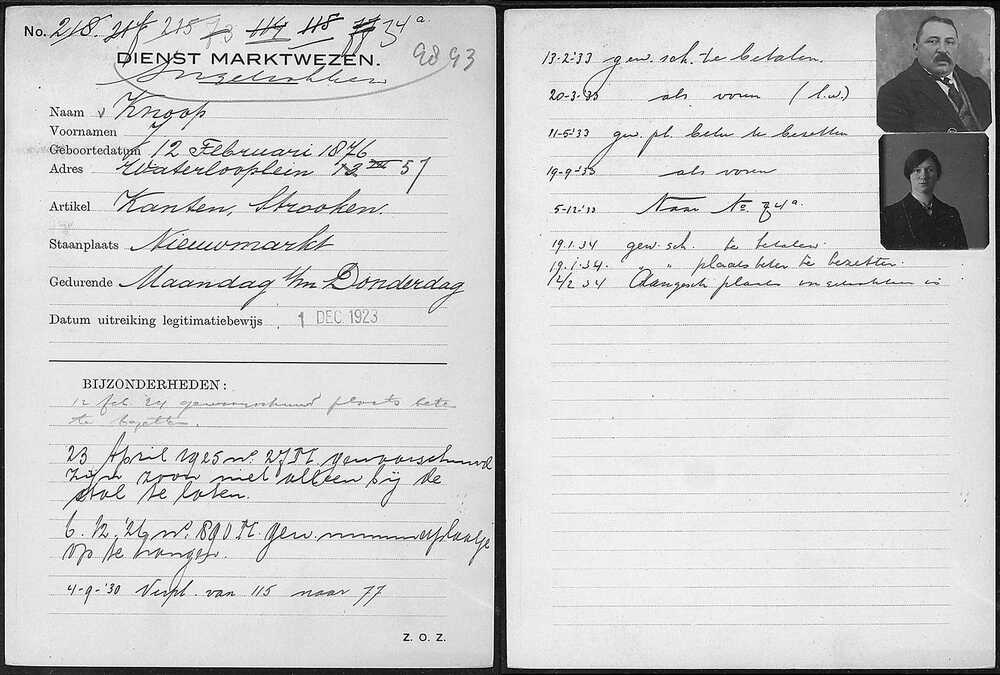 No. 218. 217 215 73 114 118 77 34 a.
DIENST MARKTWEZEN. 9893
Ingetrokken
Naam Knoop
Voornamen J
Geboortedatum 12 Februari 1876
Adres Waterlooplein 13 III 57
Artikel Kanten, Strooken.
Staanplaats Nieuwmarkt
Gedurende Maandag t/m Donderdag
Datum uitreiking legitimatiebewijs 1 DEC. 1923
BIJZONDERHEDEN:
12 feb. '24 gewaarschuwd plaats beter
te bezetten.
23 April 1925 no. 27 M. gewaarschuwd
zijn zoon niet alleen bij de
stal te laten.
6. 12. '26 no. 890 M. gew. nummerplaatje
op te hangen.
4-9-'30 Verpl. van 115 naar 77
Z. O. Z.
13-2-'33 gew. sch. te betalen.
20-3-33 als voren (l.w.)
11-5-'33 gew. pl. beter te bezetten
19-9-'33 als voren
5-12-'33 Naar No. 74 a.
19.1.34 gew. sch. te betalen.
19.1.34. " " plaats beter te bezetten.
14/2 34 plaats ingetrokken